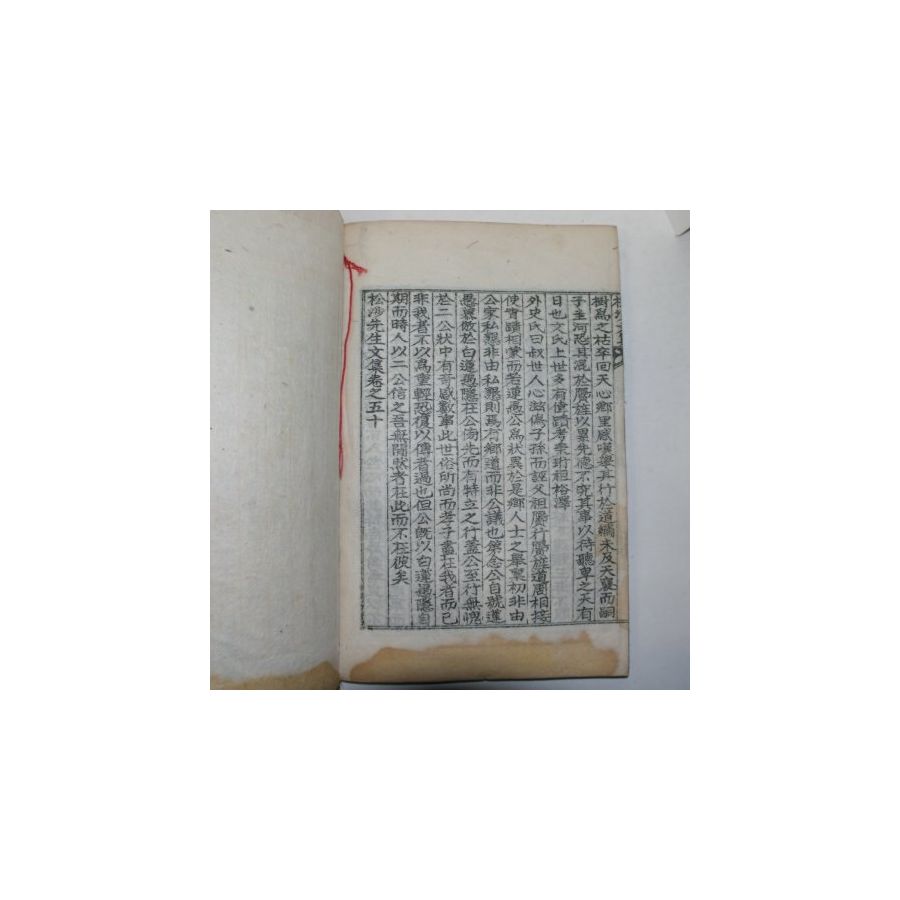 樹爲之枯卒回天心鄕里感嘆舉其行於道繡未及天褒而嗣
子圭河恐其混於贗旌以累先德不究其事以待聽卑之天有
日也文氏上世多有偉蹟考秉珩祖裕澤
外史氏曰叔世人心滋僞子孫而誣父祖贗行贗旌道周相接
使實蹟相蒙而若蓮愚公爲狀異於是鄕人士之舉褒初非由
公家私懇非由私懇則爲有鄕道而非公議也第念公自號蓮
愚慕倣於白蓮愚隱在公傍先而有特立之行蓋公至行無愧
於二公狀中有奇感數事此世俗所尚而孝子盡在我者而已
非我者不以爲重輕恐復以傳者過也但公旣以白蓮愚隱自
期而時人以二公信之吾無間然者在此而不在彼矣
松沙先生文集卷之五十